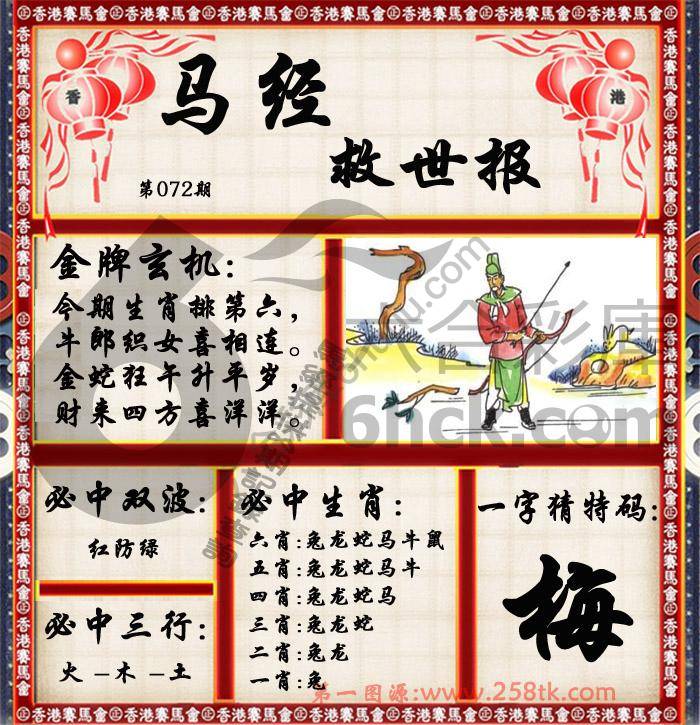 香港賽馬會
香
港
马经
救世报
第072期
金牌玄机:
今期生肖排第六,
牛郎织女喜相连。
金蛇狂午升平岁,
财来四方喜洋洋。
必中双波:
红防绿
必中三行:
火－木－土
必中生肖:
六肖:兔龙蛇马牛鼠
五肖:兔龙蛇马牛
四肖:兔龙蛇马
三肖:兔龙蛇
二肖:兔龙
一肖:兔
一字猜特码:
梅
六合彩库
6hck.com
第一图源:www.258tk.com